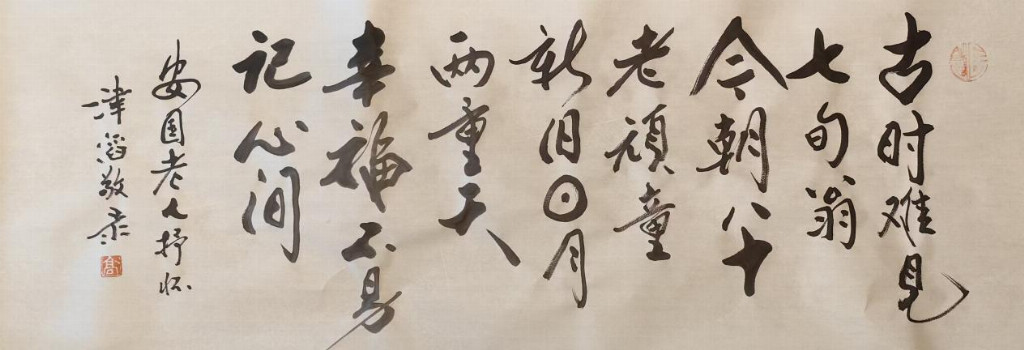 古时难见
七旬翁
今朝八十
老顽童
新旧日月
两重天
幸福不易
记心间
安国老人抒怀
津滔敬录
高